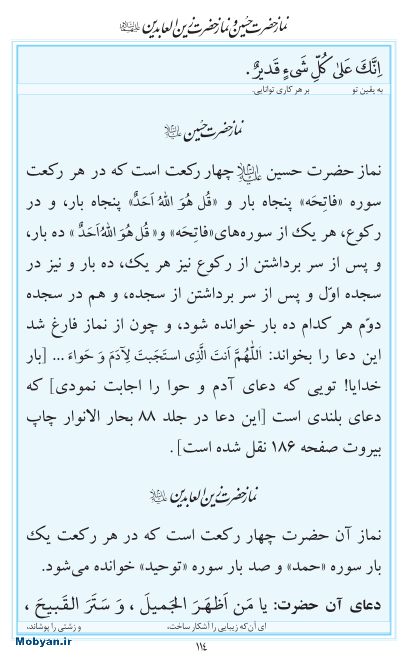 نماز حضرت حسین و نماز حضرت زین العابدین علیهماالسلام
اِنَّكَ عَلىٰ كُلِّ شَىءٍ قَديرٌ .
به یقین تو بر هر کاری توانایی.
نماز حضرت حسین علیه‌السلام
نماز حضرت حسین علیه‌السلام چهار رکعت است که در هر رکعت
سوره «فاتِحَه» پنجاه بار و «قُل هُوَ اللهُ اَحَدٌ» پنجاه بار، و در
رکوع، هر یک از سوره‌های«فاتِحَه» و«قُل هُوَ اللهُ اَحَدٌ » ده بار،
و پس از سر برداشتن از رکوع نیز هر یک، ده بار و نیز در
سجده اوّل و پس از سر برداشتن از سجده، و هم در سجده
دوّم هر کدام ده بار خوانده شود، و چون از نماز فارغ شد
این دعا را بخواند: اَللّهُمَّ اَنتَ الَّذِی استَجَبتَ لِآدَمَ وَ حَواءَ ... [بار
خدایا! تویی که دعای آدم و حوا را اجابت نمودی] که
دعای بلندی است [این دعا در جلد ۸۸ بحار الانوار چاپ
بیروت صفحه ۱۸۶ نقل شده است] .
نماز حضرت زین العابدین علیه‌السلام
نماز آن حضرت چهار رکعت است که در هر رکعت یک
بار سوره «حمد» و صد بار سوره «توحید» خوانده می‌شود.
دعای آن حضرت: يا مَن اَظهَرَ الجَميلَ ، وَ سَتَرَ القَبيحَ ،
ای آن‌که زیبایی را آشکار ساخت، و زشتی را پوشاند،
۱۱۴
Mobyan.ir